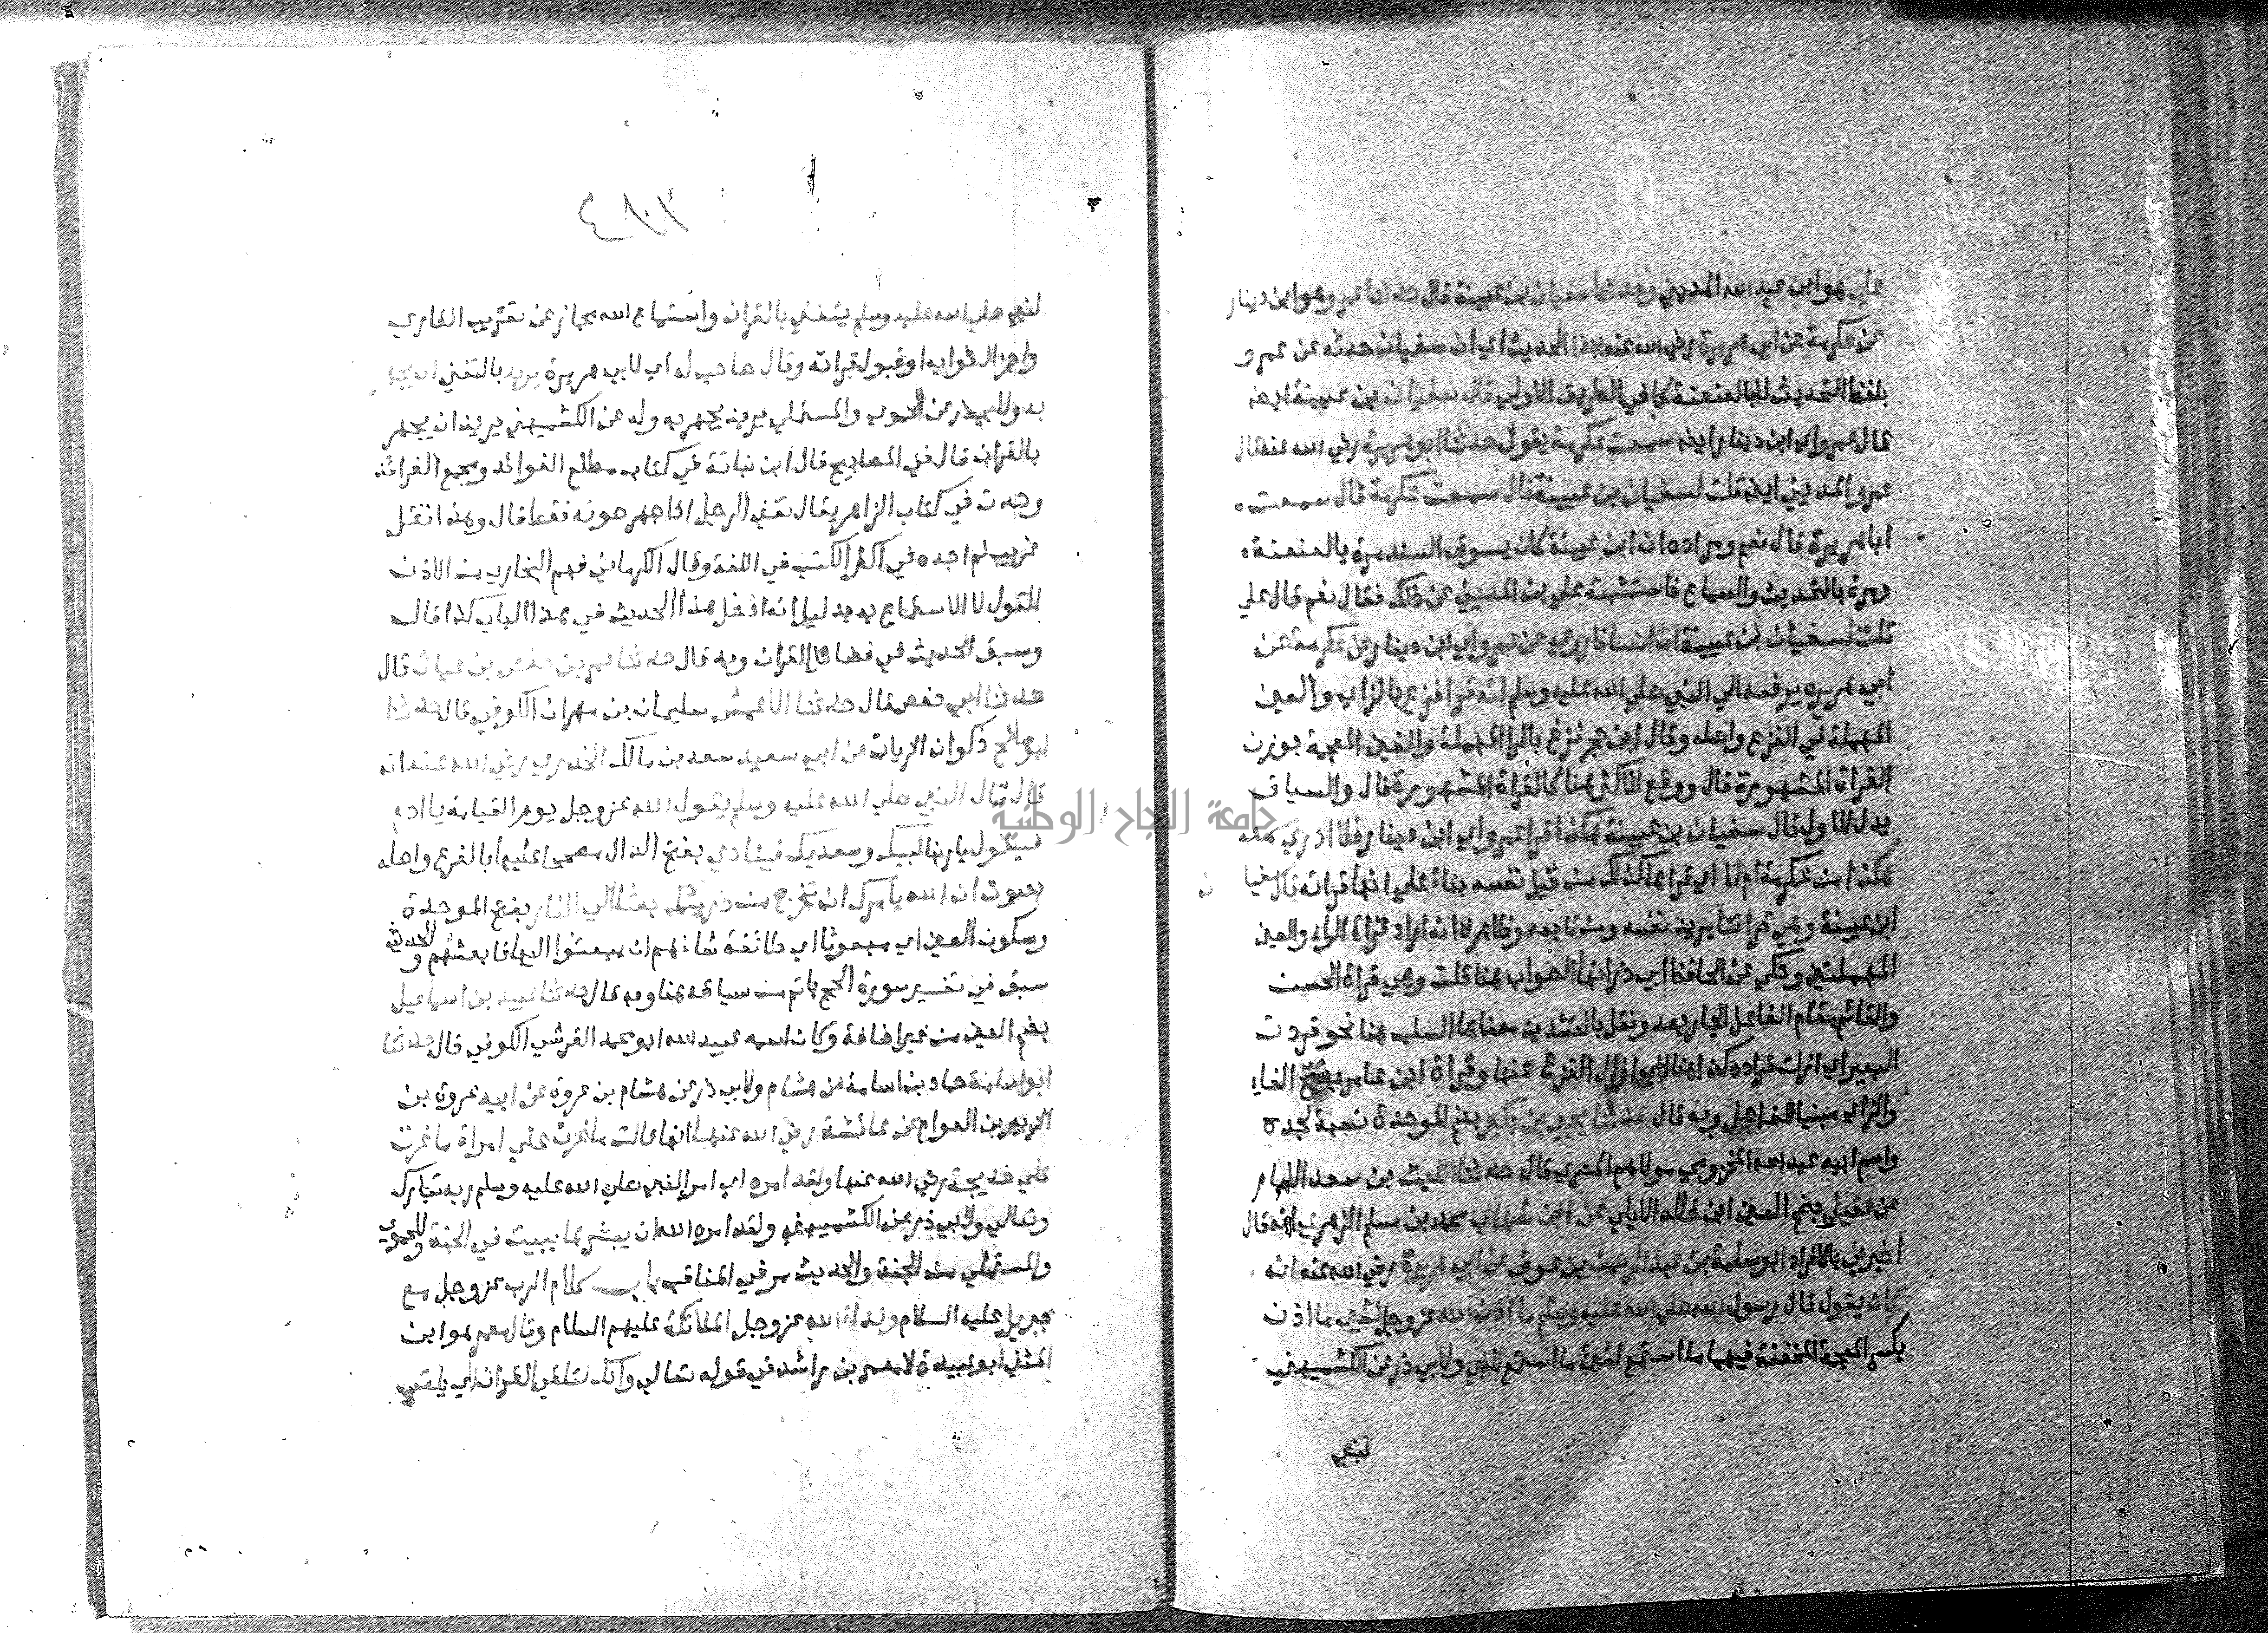 علي هو ابن عبد الله المديني وحدثنا سفيان بن عيينة قال حدثنا عمرو هو ابن دينار
عن عكرمة عن ابي هريرة رضي الله عنه بهذا الحديث اي ان سفيان حدثه عن عمرو
بلفظ التحديث لا بالعنعنة كما في الطريق الاولي قال سفيان بن عيينة ايضا
قال عمرو اي ابن دينار ايضا سمعت عكرمة يقول حدثنا ابو هريرة رضي الله عنه قال
عمرو المديني ايضا قلت لسفيان بن عيينة قال سمعت عكرمة قال سمعت
ابا هريرة قال نعم ومراده ان ابن عيينة كان يسوق السند مرة بالعنعنة
ومرة بالتحديث والسماع فاستثبته علي بن المديني عن ذلك فقال نعم قال علي
قلت لسفيان بن عيينة ان انسانا روي عن عمرو اي ابن دينار عن عكرمة عن
ابي هريره يرفعه الي النبي صلي الله عليه وسلم انه قرا فزع بالزاي والعين
المهملة في الفزع واهله وقال ابن حجر فزغ بالرا المهملة والغين المعجمة بوزن
القراة المشهورة قال ووقع للاكثر هنا كالقراة المشهورة قال والسياق
يدل للاول قال سفيان بن عيينة هكذا قرا عمرو اي ابن دينار فلا ادري سمعه
هكذا من عكرمة ام لا اي قراها كذلك من قبل نفسه بناء علي انها قراته قال سفيان
ابن عيينة وهي قراتنا يريد نفسه ومن تابعه وظاهره انه اراد قراة الراء والعين
المهملتين وحكي عن الحافظ ابي ذر انها الصواب هنا قلت وهي قراة الحسن
والقائم مقام الفاعل الجار بعده ونقل بالتشديد معناها السلب هنا نحو قردت
البعير اي ازلت قراده كذا هنا اي ازال الفزع عنها وقراة ابن عامر بفتح الفاء
والزاي مبنيا للفاعل وبه قال حدثنا يحيي بن بكير بضم الموحدة نسبة لجده
واسم ابيه عبد الله المخزومي مولاهم المصري قال حدثنا الليث بن سعد الامام
عن عقيل بضم العين ابن خالد الايلي عن ابن شهاب محمد بن مسلم الزهري انه قال
اخبرني بالافراد ابو سلمة بن عبد الرحمن بن عوف عن ابي هريرة رضي الله عنه انه
كان يقول قال رسول الله صلي الله عليه وسلم ما اذن الله عز وجل لشي ما اذن
بكسر المعجمة المخففة فيهما ما استمع لشي ما استمع لنبي ولابي ذر عن الكشميهني
لنبي
٤٨٠٣
لنبي صلي الله عليه وسلم يتغني بالقران واستماع الله مجاز عن تقريب القاري
واجزال ثوابه او قبول قراته وقال صاحب له اي لابي هريرة يريد بالتغني ان يجهر
به ولابي ذر عن الحموي والمستملي يريد يجهر به وله عن الكشميهني يريد ان يجهر
بالقران قال في المصابيح قال ابن نباتة في كتاب مطلع الفوائد ومجمع الفرائد
وجدت في كتاب الزاهر يقال تغني الرجل اذا جهر صوته فقط قال وهذا نقل
غريب لم اجده في اكثر الكتب في اللغة وقال الكرماني فهم البخاري من الاذن
القول لا الاستماع به بدليل انه ادخل هذا الحديث في هذا الباب كذا قال
وسبق الحديث في فضائل القران وبه قال حدثنا عمر بن حفص بن غياث قال
حدثنا ابي حفص قال حدثنا الاعمش سليمان بن مهران الكوفي قال حدثنا
ابو صالح ذكوان الزيات عن ابي سعيد سعد بن مالك الخدري رضي الله عنه انه
قال قال النبي صلي الله عليه وسلم يقول الله عز وجل يوم القيامة يا ادم
جامعة النجاح الوطنية
فيقول يا ربنا لبيك وسعديك فينادي بفتح الدال مصححا عليها بالفرع واصله
بصوت ان الله يامرك ان تخرج من ذريتك بعثا الي النار بفتح الموحدة
وسكون العين اي مبعوثا اي طائفة شانهم ان يبعثوا اليها فابعثهم والحديث
سبق في تفسير سورة الحج باتم من سياقه هنا وبه قال حدثنا عبيد بن اسماعيل
بضم العين من غير اضافة وكان اسمه عبيد الله ابو محمد القرشي الكوفي قال حدثنا
ابو اسامة حماد بن اسامة عن هشام ولابي ذر عن هشام بن عروة عن ابيه عروة بن
الزبير بن العوام عن عائشة رضي الله عنها انها قالت ما غرت علي امراة ما غرت
علي خديجة رضي الله عنها ولقد امره اي امر النبي صلي الله عليه وسلم ربه تبارك
وتعالي ولابي ذر عن الكشميهني ولقد امره الله ان يبشرها ببيت في الجنة وللحموي
والمستملي من الجنة والحديث مر في المناقب باب كلام الرب عز وجل مع
جبريل عليه السلام ونداء الله عز وجل الملائكة عليهم السلام وقال معمر هو ابن
المثني ابو عبيدة لا معمر بن راشد في قوله تعالي وانك لتلقي القران اي يلقي